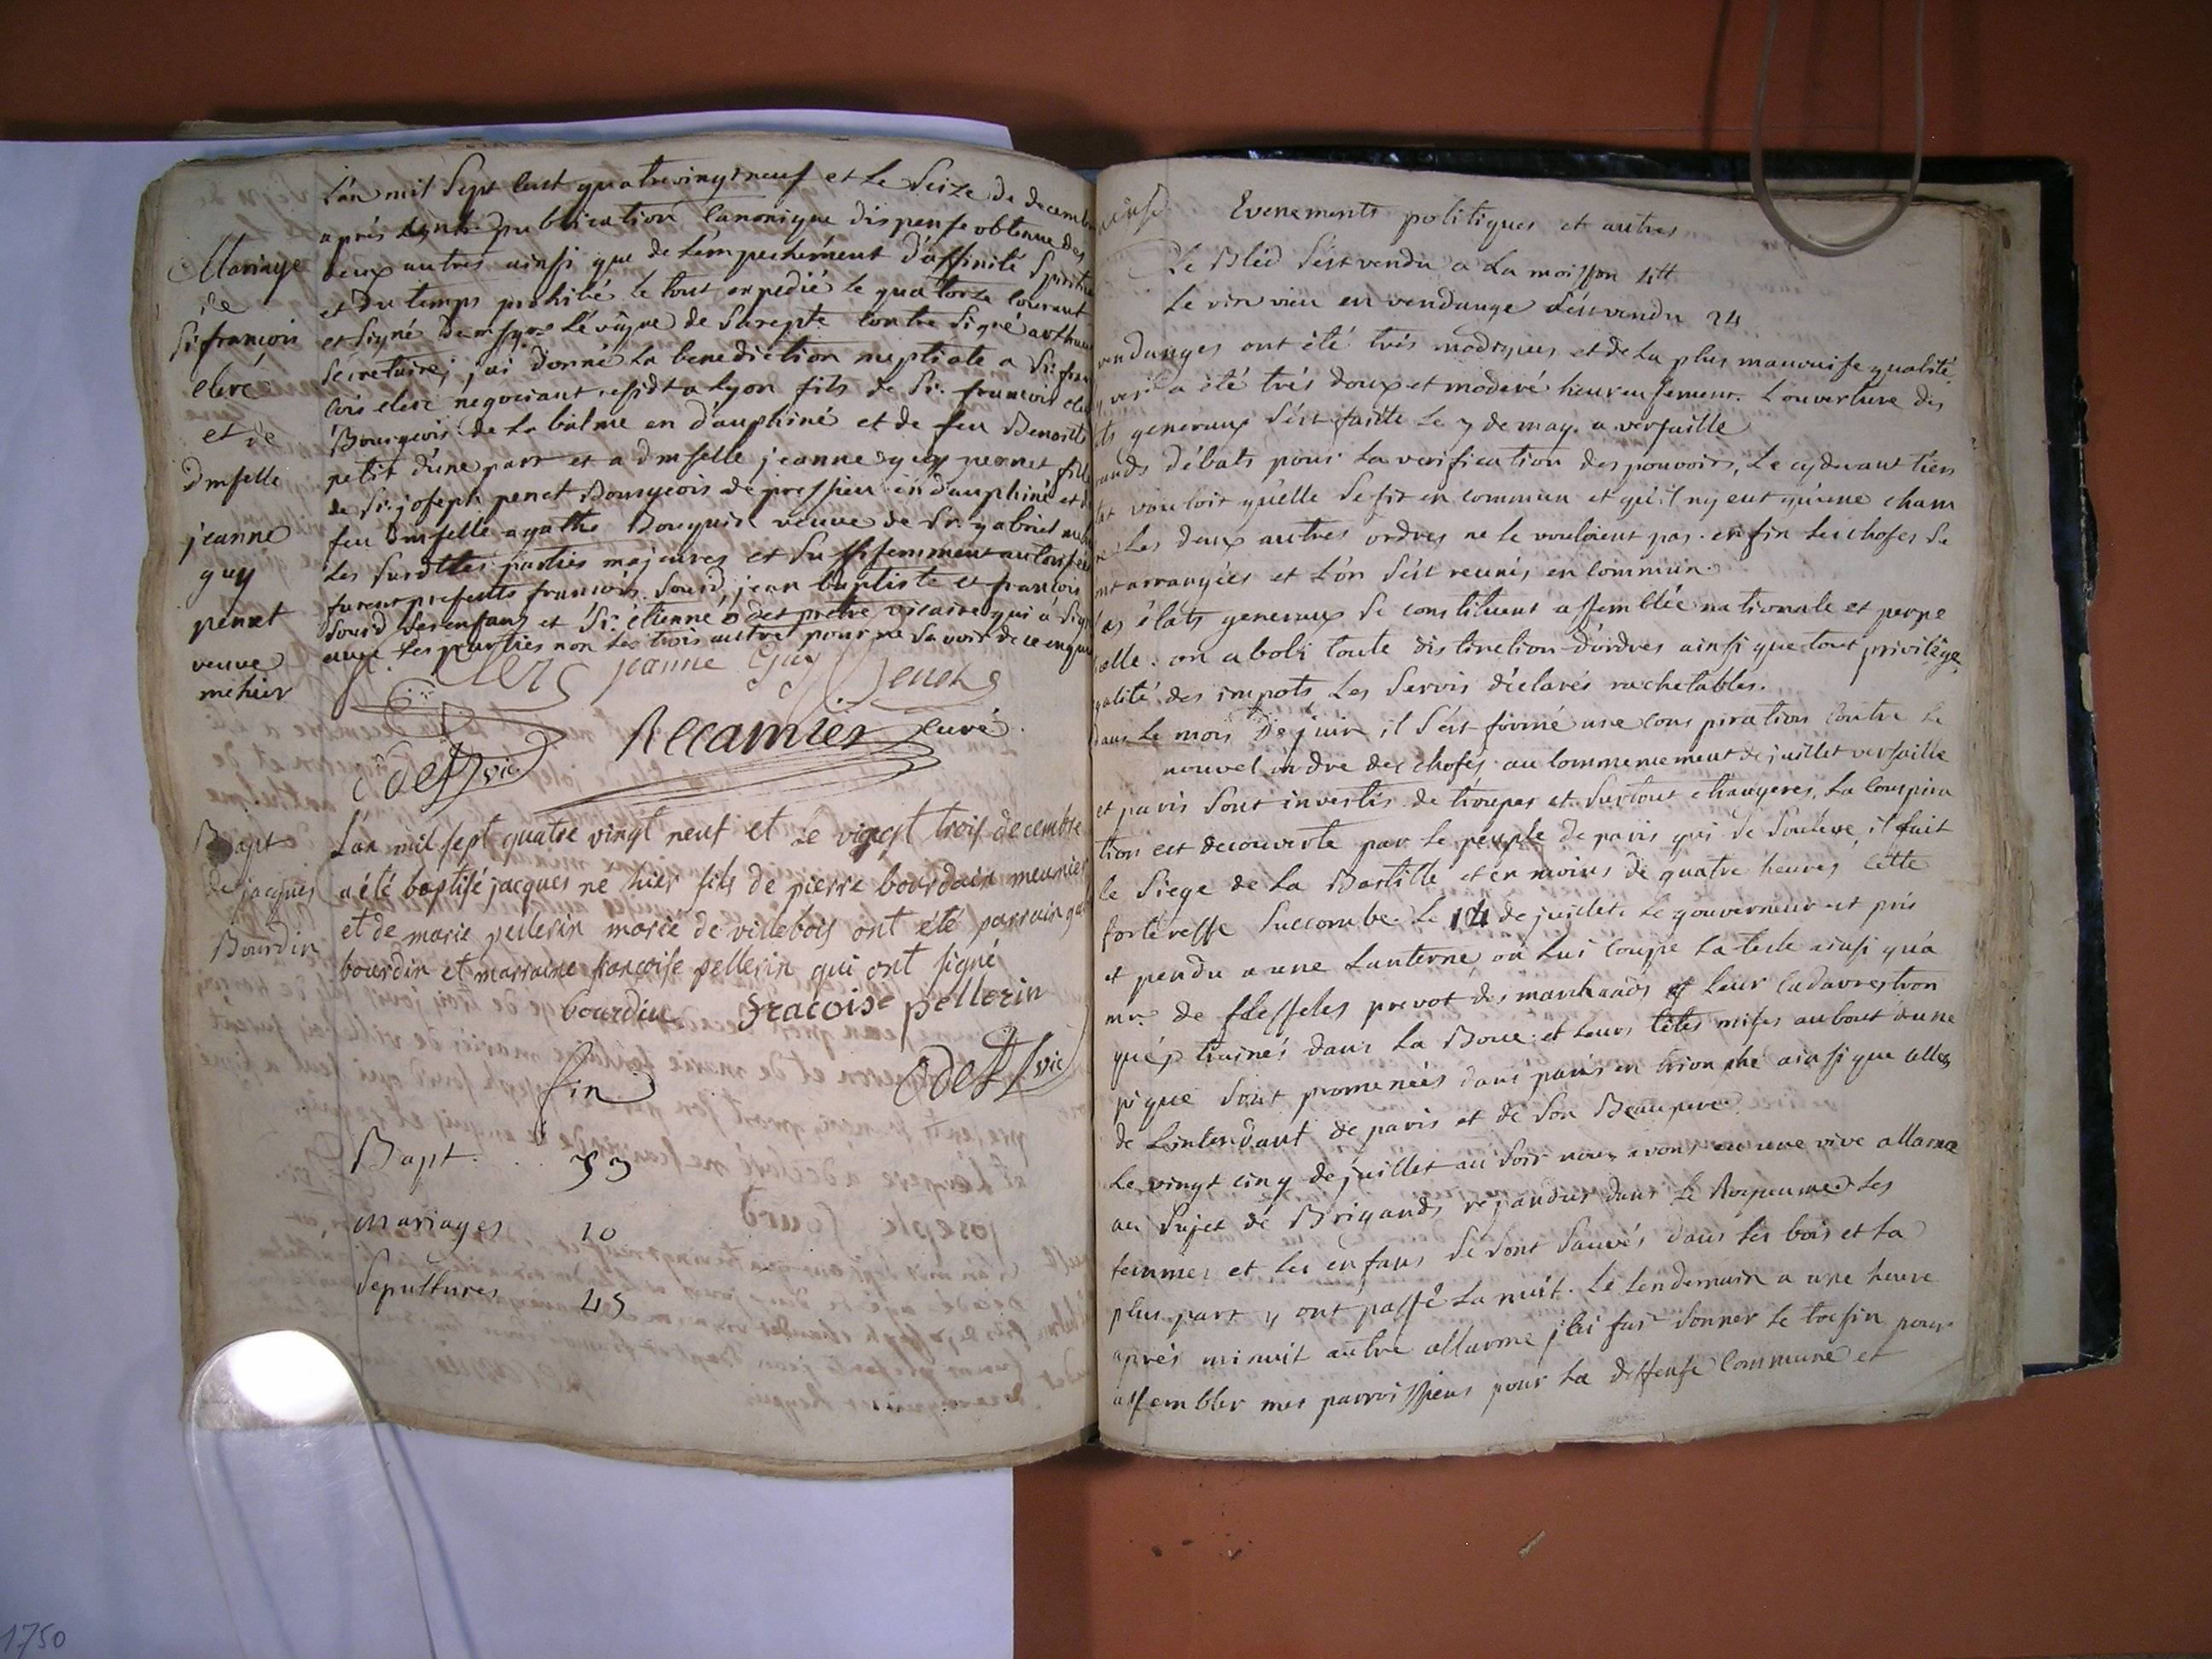 L'an mil Sept Cent quatrevingtneuf et le Seize de decembre
après publication Canonique dispense obtenue des
deux autres ainsi que de L'empechement d'affinité Spirit
et Du temps prohibé le tout expedié le quatorze Courant
et Signé De Lévêque de Sarepte Contre Signé
Secretaire, j'ai Donné La benediction nuptiale a Sr. fran
cois clerc négociant residt a Lyon fils de Sr. francois
Bourgeois de La balme en dauphiné et de feu Benoite
petit d'une part et a dmselle jeanne guy penet fille
de Sr. joseph penet Bourgeois de pressieu en dauphiné et de
feu Dmselle agathe Bouquin veuve de Sr. gabriel
Les Susdttes parties majeures et Suffisemment autorisées
furent presents francois Sourd, jean baptiste et francois
Sourd Ses enfans et Sr. étienne odet pretre vicaire qui a Sig
avec Les parties non Les trois autres pour ne Savoir de ce enquis
Mariage
de
Sr francois
clerc
et de
Dmselle
jeanne
guy
penet
veuve
mehier
Clerc jeanne Guy Penet
Recamier curé
Odet vic
Bapt
de jacques
Bourdin
L'an mil sept quatre vingt neuf et le vingt trois decembre
a été baptisé jacques né hier fils de pierre bourdain meunier
et de marie pellerin marié de villebois ont été parrain
bourdin et marraine francoise pellerin qui ont signé
bourdin fracoise pellerin
Odet vic
fin
Bapt. 53
Mariages 10
Sepultures 45
Evenements politiques et autres
Le Bléd S'est vendu a La moisson 4tt
Le vin vieu en vendange S'est vendu 24
vendanges ont été très modiques et de La plus mauvaise qualité
yver a été très doux et moderé heureusement. L'ouverture des
ts generaux S'est faitte Le 7 de may a versaille
rands débats pour La verification des pouvoirs, Le cydevant tiers
tat vouloit qu'elle Se fit en commun et qu'il n'y eut qu'une cham
re Les deux autres ordres ne le vouloient pas. enfin Les choses Se
ont arrangées et L'on S'est reunis en Commun.
Les états generaux Se constituent assemblée nationale et perpe
tuelle. on aboli toute distinction d'ordres ainsi que tout privilège
galité des impots Les Servis déclarés rachetables.
dans Le mois De juin il S'est formé une Conspiration Contre Le
nouvel ordre des choses au Commencement de juillet versaille
et paris Sont investis de troupes et Surtout etrangeres, La Conspira
tion est decouverte par Le peuple de paris qui Se Souleve, il fait
le Siege de La Bastille et en moins de quatre heures Cette
forteresse Succombe. Le 14 de juillet. Le gouverneur est pris
et pendu a une Lanterne on Lui Coupe La teste ainsi qu'a
mr. de flesseles prevot des marchands et leur Cadavres tron
qués trainés dans La Boue. et Leurs têtes mises au bout d'une
pique Sont promenées dans paris en triomphe ainsi que celles
de L'intendant de paris et de Son Beaupere.
Le vingt cinq de juillet au Soir nous avons eu une vive allarme
au Sujet de Brigands repandus dans Le Royaume. Les
femmes et Les enfans Se Sont Sauvés dans Les bois et La
plus part y ont passé La nuit. Le Lendemain a une heure
après minuit autre allarme j'ai fait Sonner Le tocsin pour
assembler mes parroissiens pour La deffense Commune et
1750